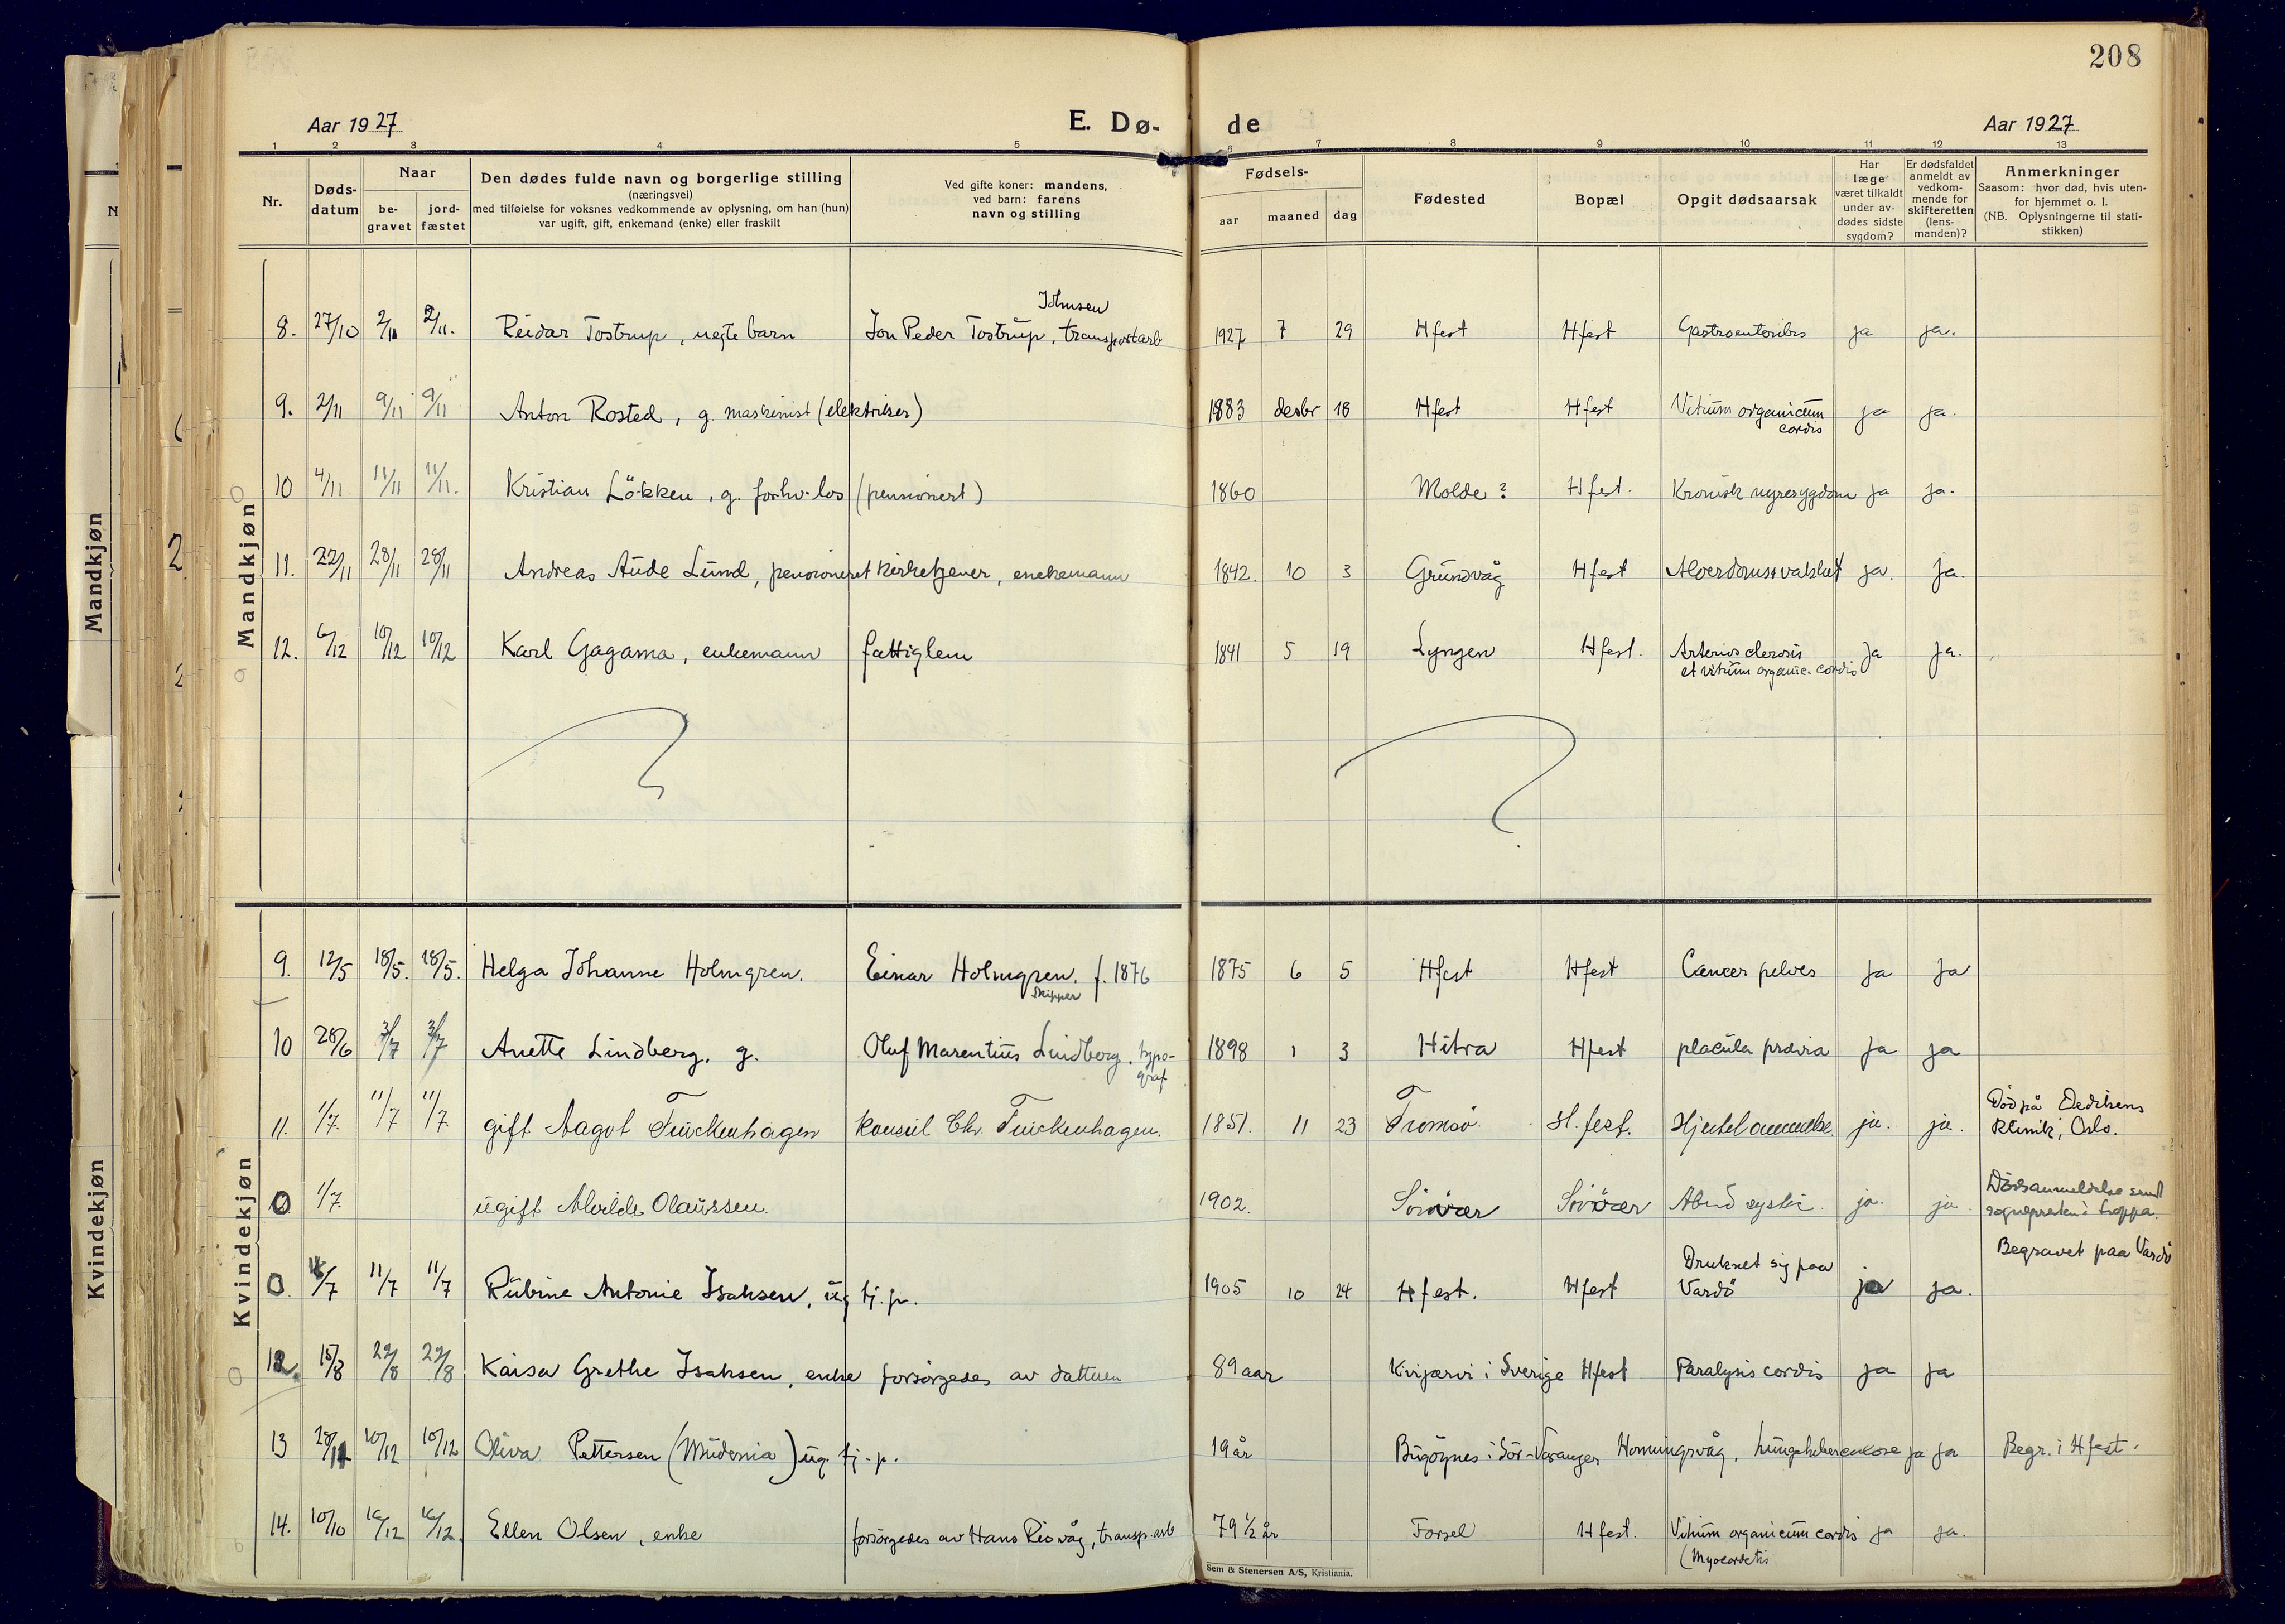 208
Aar 1927
E. Dø-
de
Aar 1927
1 2 3 4 5 6 7 8 9 10 11 12 13
Nr.
Døds-
datum
Naar
be-
gravet
jord-
fæstet
Den dødes fulde navn og borgerlige stilling
(næringsvei)
med tilføielse for voksnes vedkommende av oplysning, om han (hun)
var ugift, gift, enkemand (enke) eller fraskilt
Ved gifte koner: mandens,
ved barn: farens
navn og stilling
Fødsels-
aar maaned dag
Fødested
Bopæl
Opgit dødsaarsak
Har
læge
været tilkaldt
under av-
dødes sidste
sygdom?
Er dødsfaldet
anmeldt av
vedkom-
mende for
skifteretten
(lens-
manden)?
Anmerkninger
Saasom: hvor død, hvis uten-
for hjemmet o. l.
(NB. Oplysningerne til stati-
stikken)
Mandkjøn
Mandkjøn
Johnsen
8. 27/10 2/11 2/11. Reidar Tostrup, uegte barn Jon Peder Tostrup, transportarb 1927 7 29 Hfest Hfest Gastroenteritis ja ja.
9. 2/11 9/11 9/11 Anton Rosted, g. maskinist (elektriker) 1883 desbr 18 Hfest Hfest Vitium organicum ja ja.
cordis
10 4/11 11/11 11/11. Kristian Lökken, g. forhv. los (pensionert) 1860 Molde? Hfest. Kronisk nyresygdom ja ja.
11. 22/11 28/11 28/11 Andreas Aude Lund, pensioneret kirketjener, enekemann 1842. 10 3 Grundvåg Hfest Alderdomssvakhet ja. ja.
12. 6/12 10/12 10/12 Karl Gagama, enkemann fattiglem 1841 5 19 Lyngen Hfest. Arteriosclerosis ja ja.
et vitium organic. cordis
Kvindekjøn
Kvindekjøn
9. 12/5 18/5. 18/5. Helga Johanne Holmgren. Einar Holmgren. f. 1876 1875 6 5 Hfest Hfest Cancer pelves ja ja
skipper
10 28/6 3/7 3/7 Anette Lindberg. g. Oluf Marentius Lindberg. typo- 1898 1 3 Hitra Hfest placula prævia ja ja
graf
11. 1/7. 11/7 11/7. gift Aagot Finckenhagen konsul Chr. Finckenhagen. 1851. 11 23 Tromsö. H.fest. ja. ja. Död på Dedichens
klinik, Oslo.
0 1/7. ugift Olaussen. 1902. Sörvær Sörvær ja. ja. Dödsanmeldelse sendt
sognepresten i Loppa.
Begravet paa Vardö
Druknet sig paa
0. /7 11/7 11/7 Rubine Antonie Isaksen, ug tj.p. 1905 10 24 Hfest. Hfest Vardö ja ja.
12. 15/8 22/8 22/8 Kaisa Grethe Isaksen, enke forsörgedes av datteren 89 aar Kivijærvi i Sverige Hfest Paralysis cordis ja ja
13 10/12 10/12 Oliva Pettersen (Mudenia) ug. tj.p. 19 år Bugöynes i Sör-Varanger Honningsvåg. ja ja Begr. i Hfest.
14. 10/10 16/12 16/12. Ellen Olsen, enke forsörgedes av Hans Risvåg, transp.arb 79 1/2 år Forsel Hfest. Vitium organicum cordis ja ja.
(Myocordetis
Sem & Stenersen A/S, Kristiania.